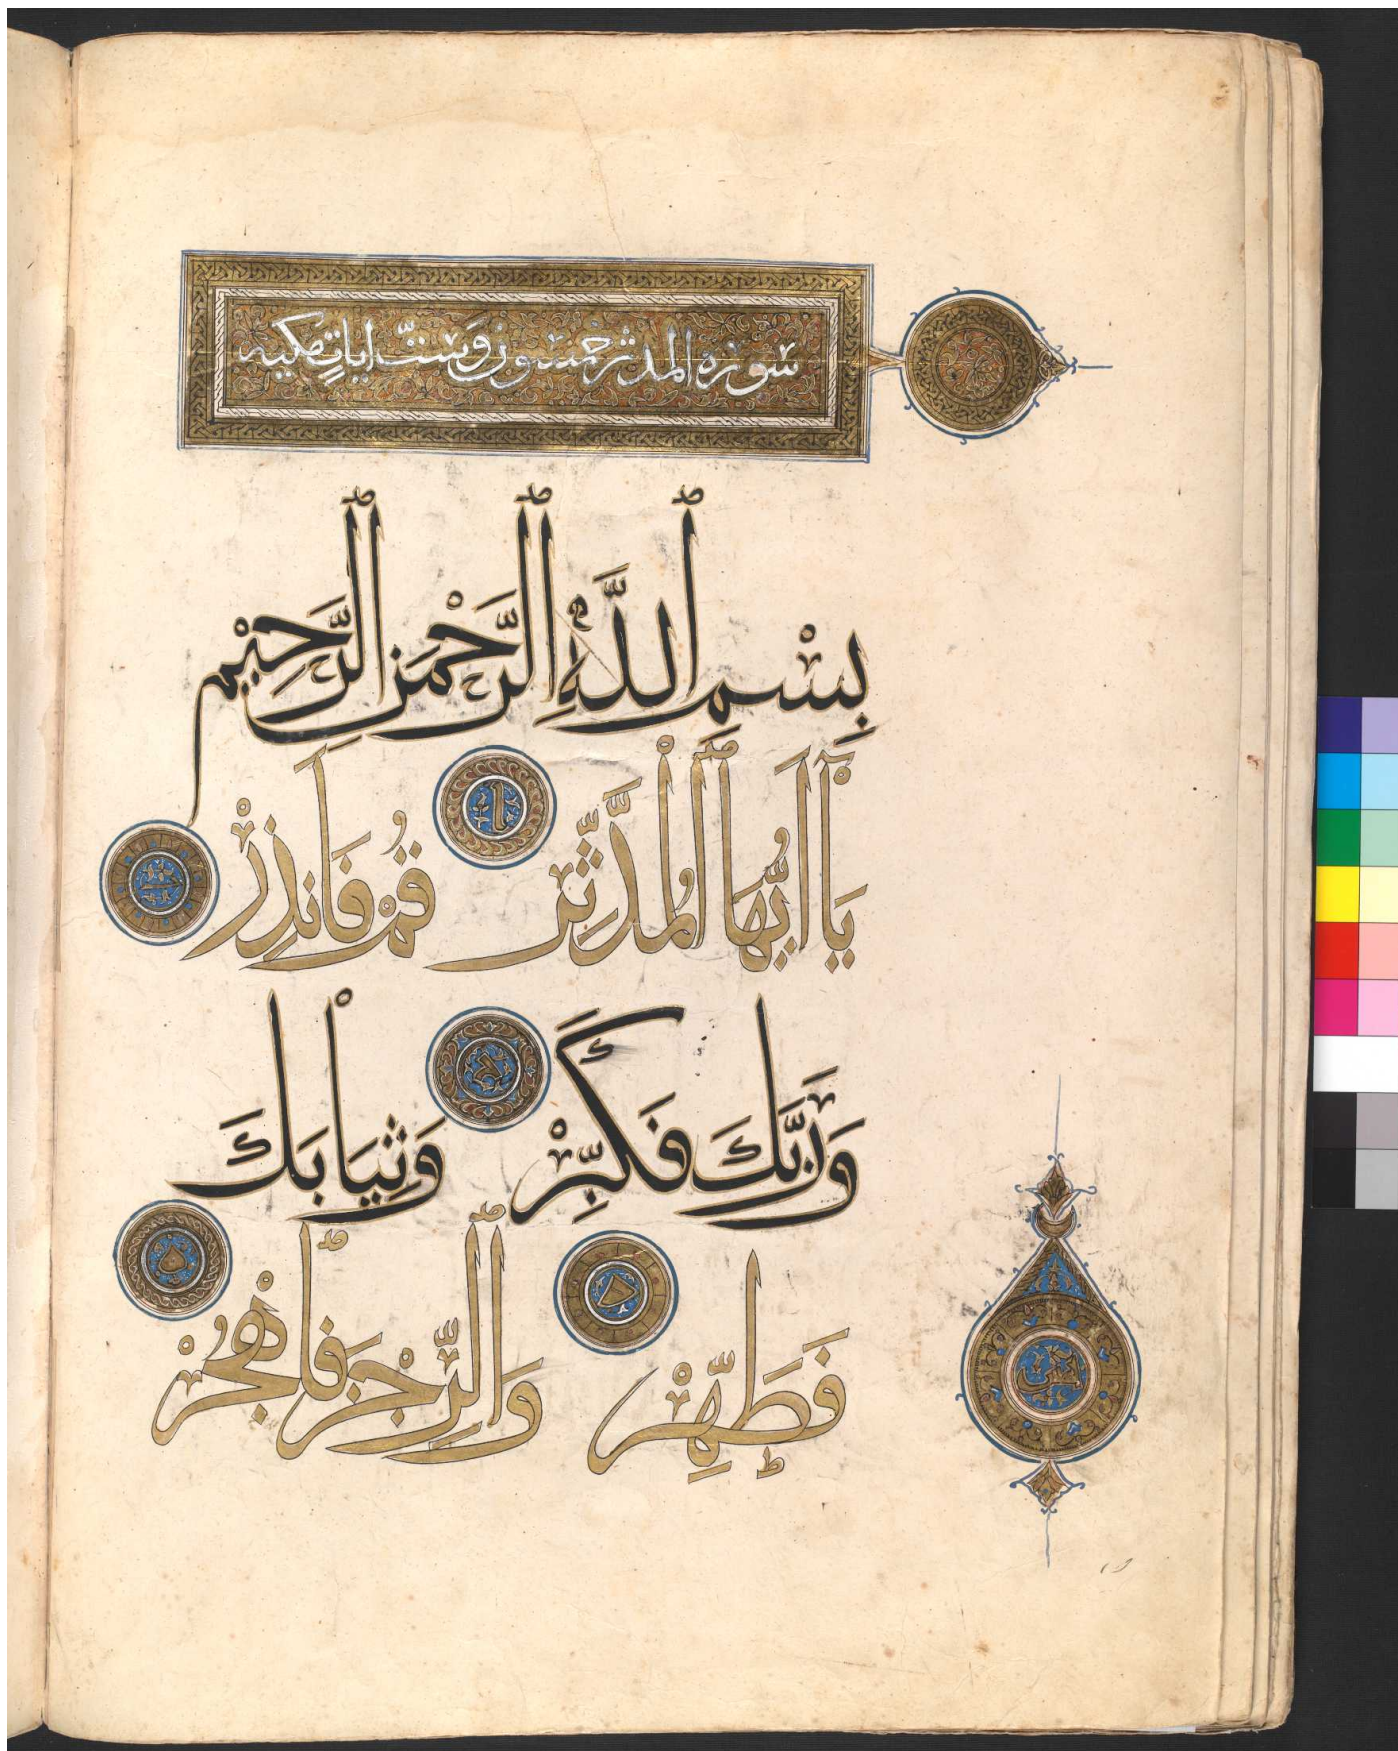 سوره المدثر خمسون وست ايات مكيه
بِسْمِ ٱللَّهِ ٱلرَّحْمٰنِ ٱلرَّحِيْمِ
يَآ اَيُّهَا ٱلْمُدَّثِّرْ ا قُمْ فَاَنْذِرْ ب
وَرَبَّكَ فَكَبِّرْ ج وَثِيَابَكَ
فَطَهِّرْ د وَٱلرِّجْزَ فَٱهْجُرْ ه
خمس